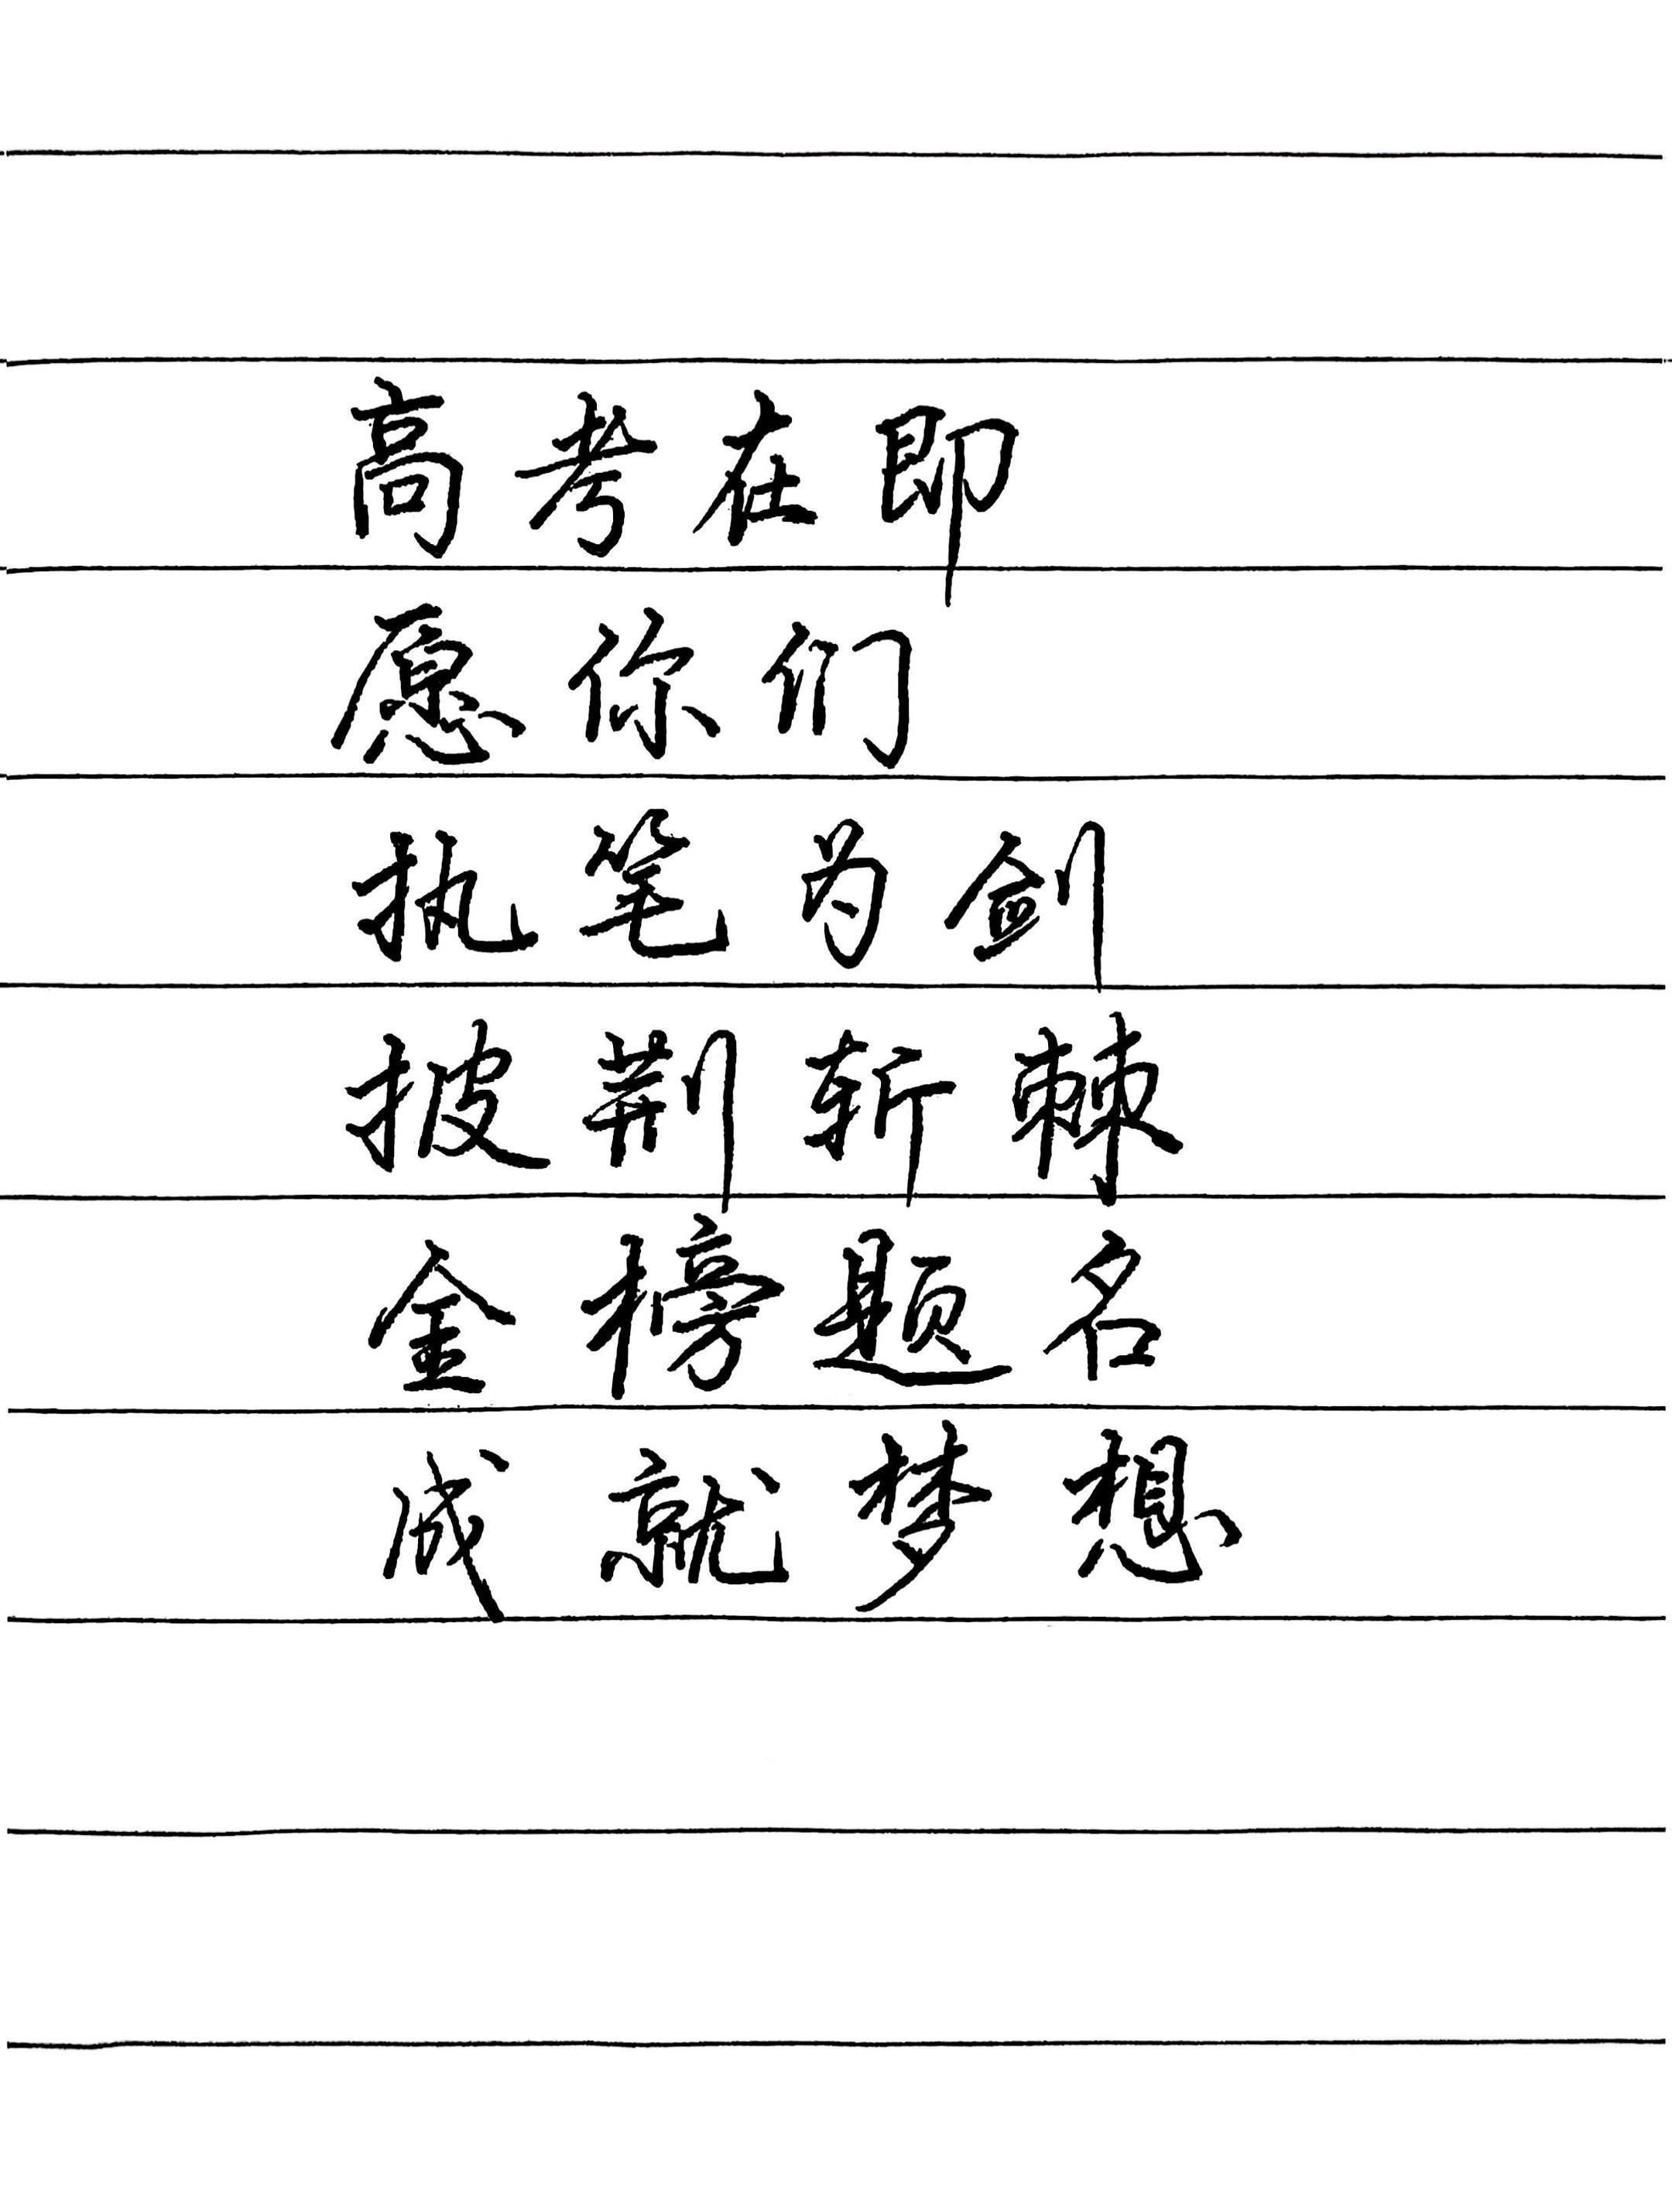 高考在即
愿你们
执笔为剑
披荆斩棘
金榜题名
成就梦想